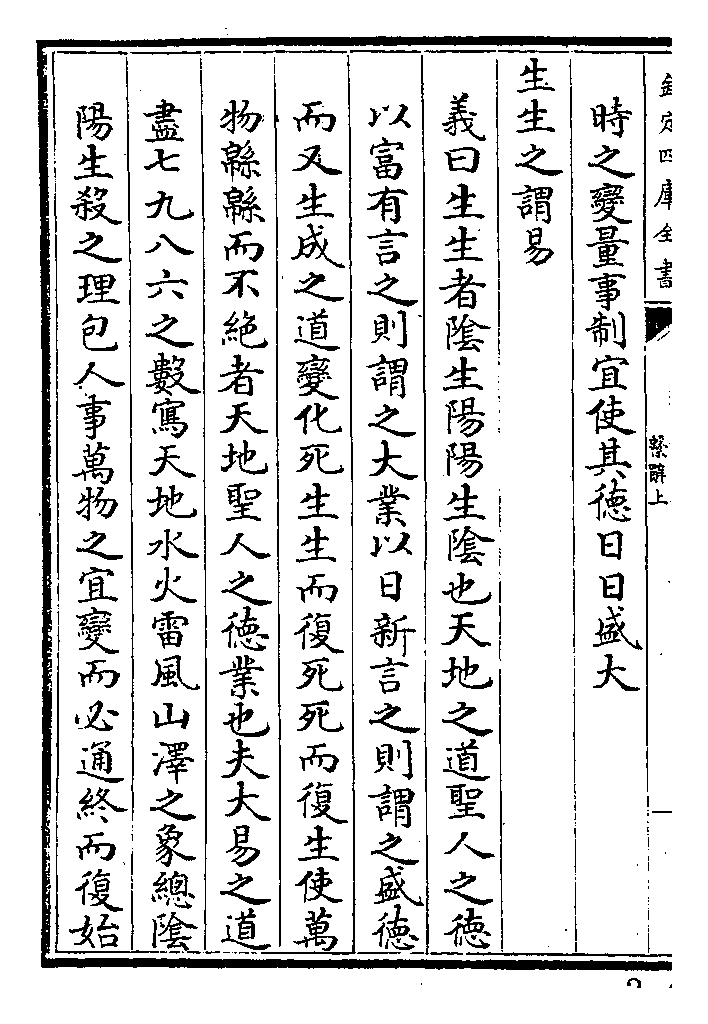 欽定四庫全書
繫辭上
時之變量事制宜使其徳日日盛大
生生之謂易
義曰生生者陰生陽陽生陰也天地之道聖人之徳
以富有言之則謂之大業以日新言之則謂之盛徳
而又生成之道變化死生生而復死死而復生使萬
物緜緜而不絶者天地聖人之徳業也夫大易之道
盡七九八六之數寫天地水火雷風山澤之象總陰
陽生殺之理包人事萬物之宜變而必通終而復始